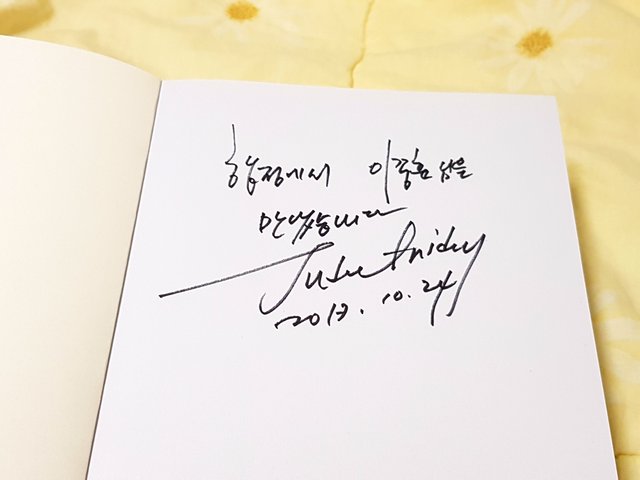 합정에서 님을
만났습니다
Jude Friday
2017. 10. 24